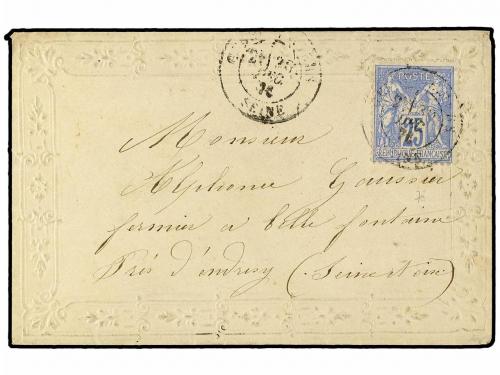 SEINE
POSTE
25
REPUBLIQUE FRANÇAISE
Monsieur
Alphonse Gaussier
fermier a belle fontaine
Près d'andresy (Seine et oise)